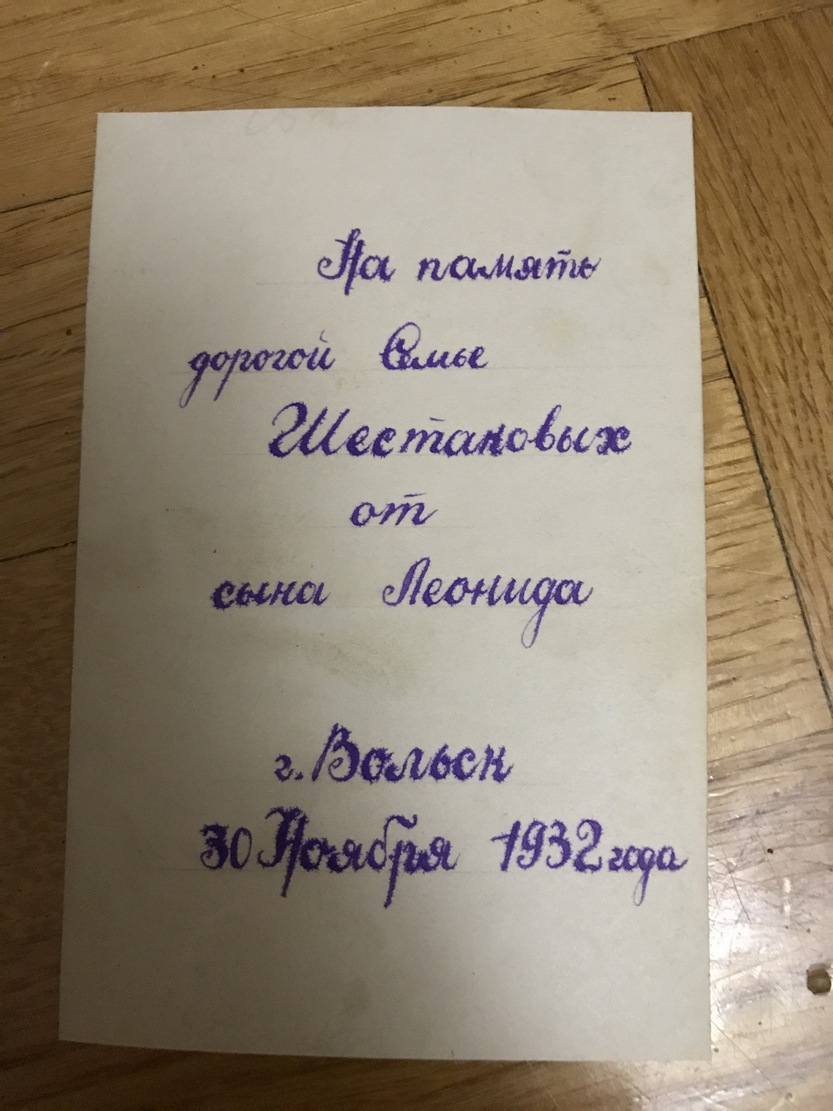 На память
дорогой Семье
Шестаковых
от
сына Леонида
г. Вольск
30 Ноября 1932 года